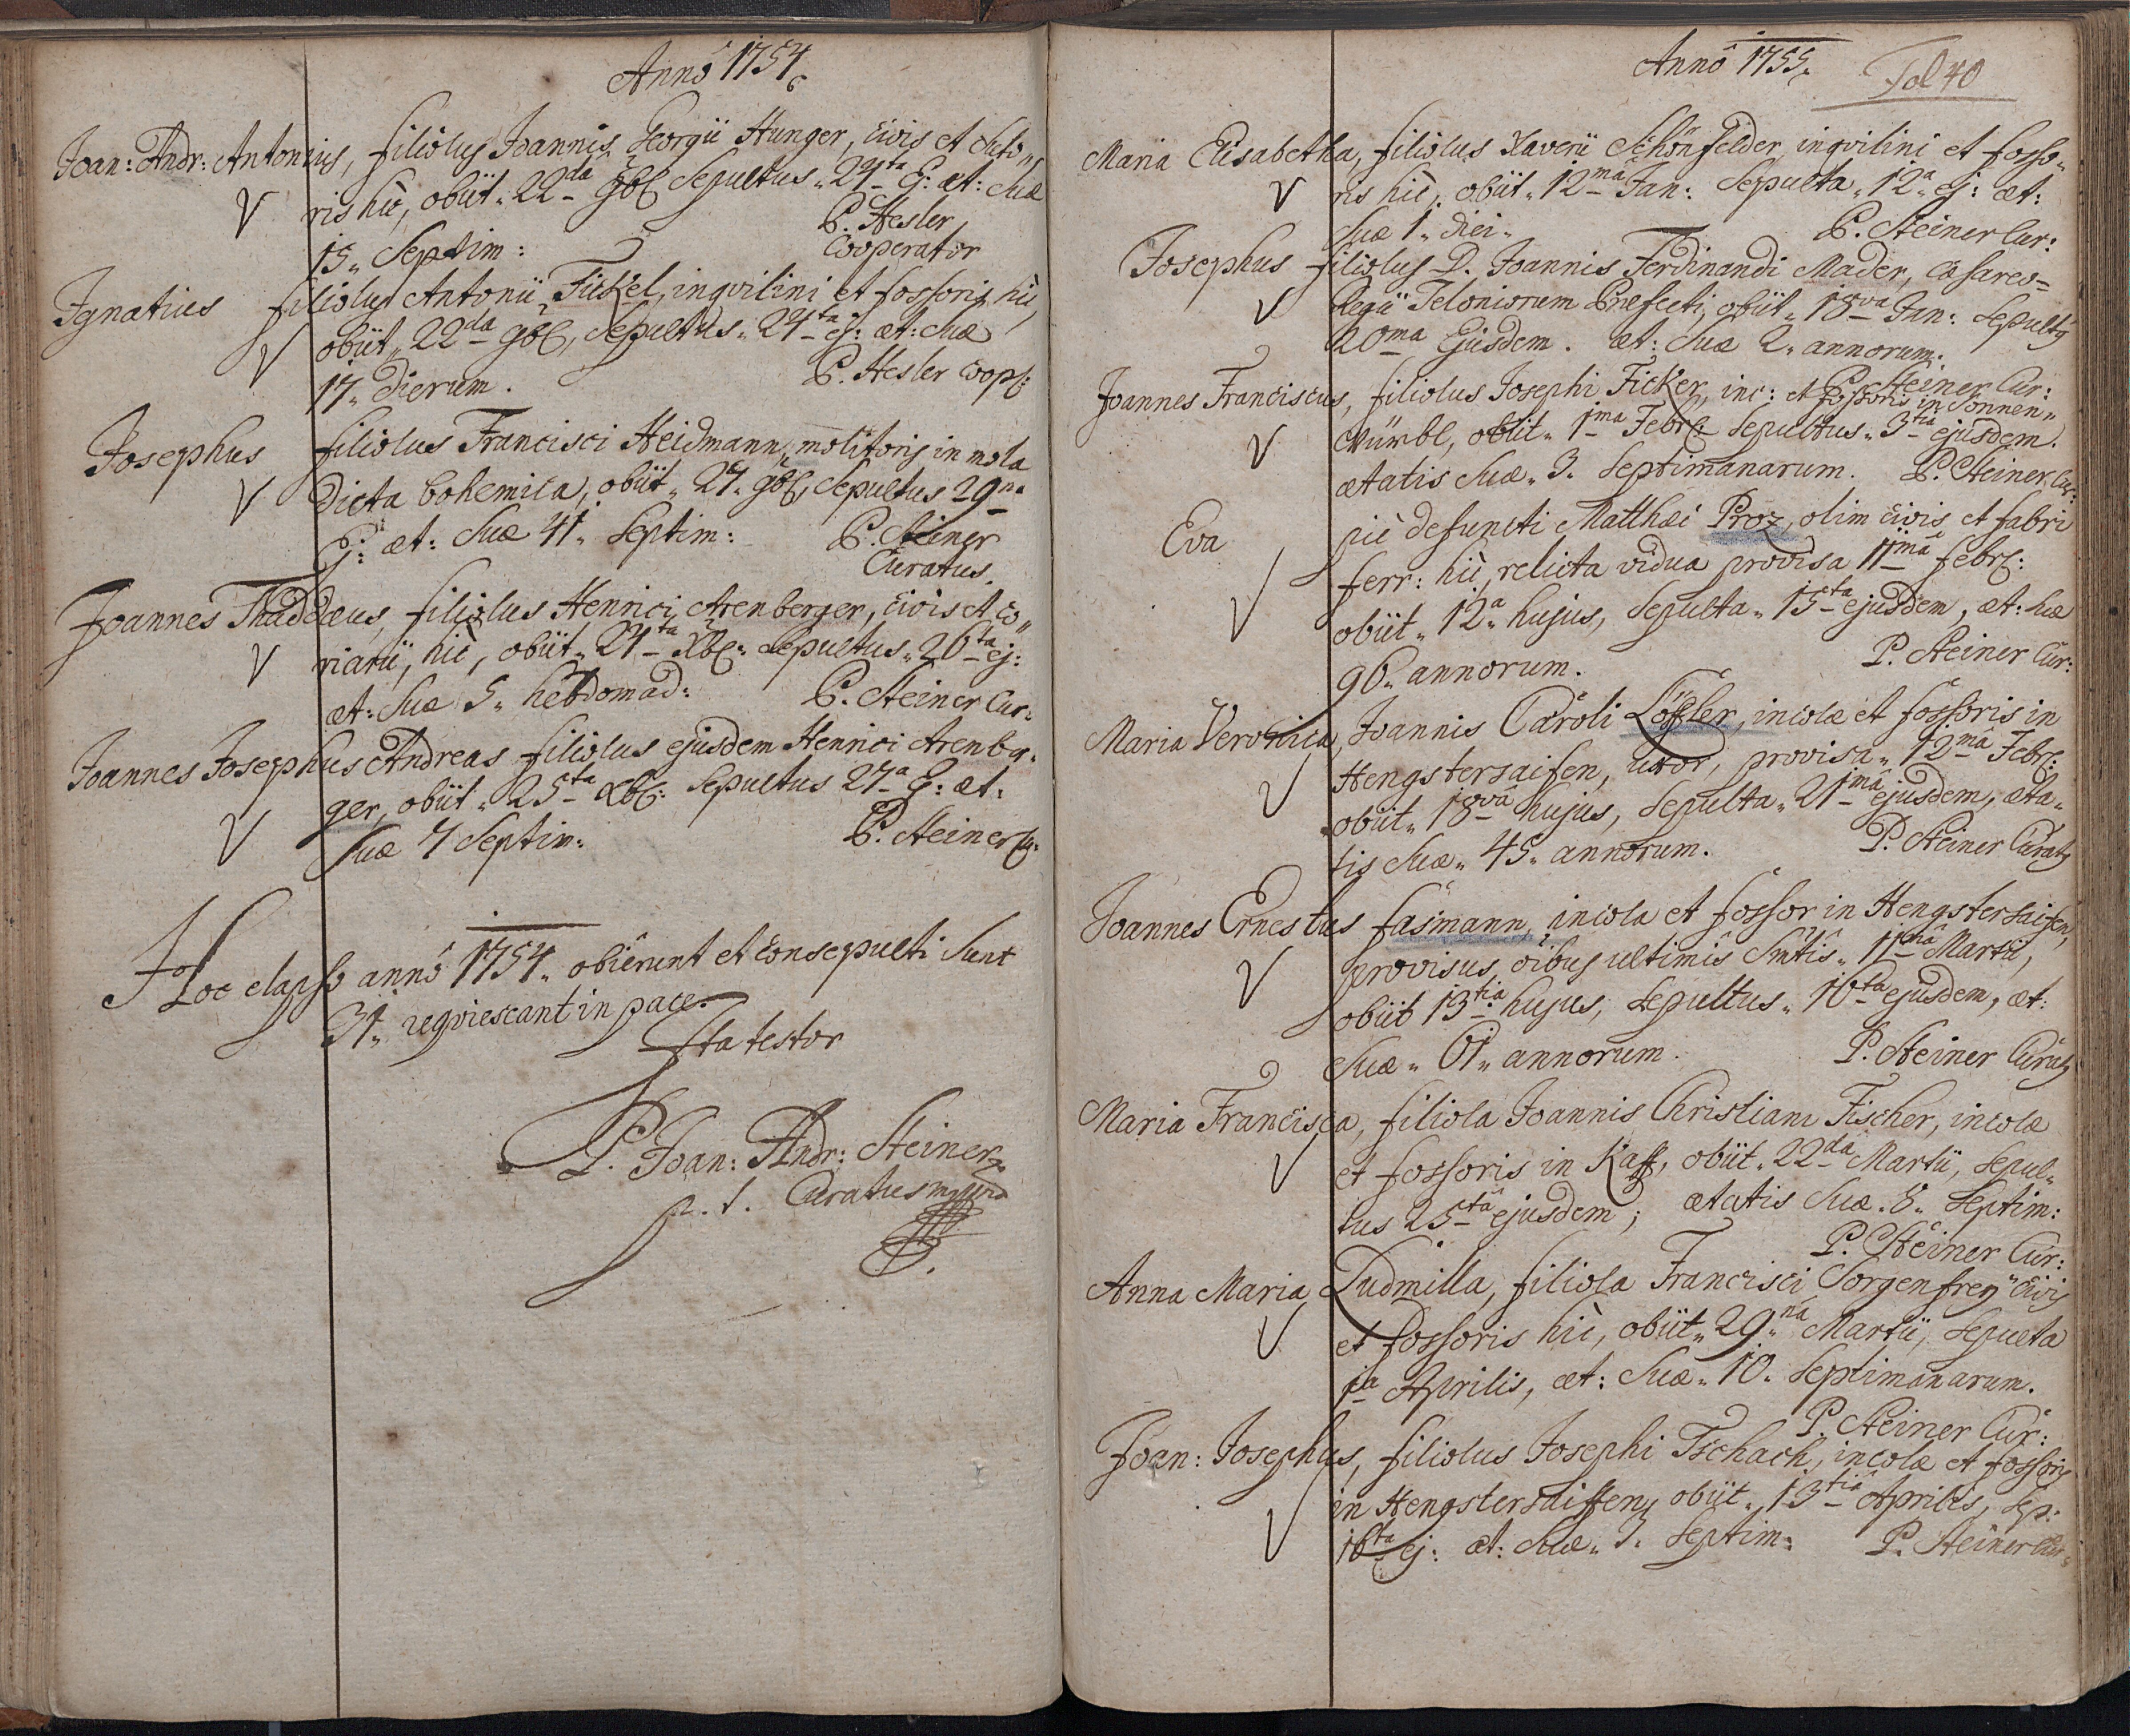 Annô 1754.
Joan: Andr: Antonius, filiolus Joannis Georgii Hunger, civis et Suto„
ris hic, obiit„ 22da 9br: Sepultus„ 24ta Ej: æt: Suæ
15„ Septim: P. Hesler
Cooperator
Ignatius filiolus Antonii Fickel, inqvilini et fossoris hic,
obiit„ 22da 9br: Sepultus„ 24ta ej: æt: Suæ
17„ Dierum. P. Hesler Coop:
Josephus filiolus Francisci Heidmann, molitoris in mola
Dicta bohemica, obiit„ 27„ 9br: Sepultus 29na
Ej: æt: Suæ 41„ Septim: P. Steiner
Curatus.
Joannes Thaddæus, filiolus Henrici Arenberger, civis et co„
riarii, hic, obiit„ 24ta Xbr: Sepultus„ 26ta ej:
æt: Suæ 5„ hebdomad: P. Steiner Cur:
Joannes Josephus Andreas filiolus ejusdem Henrici Arenber„
ger, obiit„ 25ta Xbr: Sepultus 27a Ej: æt:
Suæ 7 Septim: P. Steiner C:
Hoc elapso annô 1754„ obierunt et consepulti Sunt
31„ reqviescant in pace.
Ita testor
P. Joan: Andr: Steiner
p. t. Curatus mppria
Annô 1755.
Fol 40
Maria Elisabetha, filiolus Xaverii Schönfelder inqvilini et fosso„
ris hic, obiit„ 12ma Jan: Sepulta„ 12a ej: æt:
Suæ 1„ diei„ P. Steiner Cur:
Josephus filiolus D. Joannis Ferdinandi Mader, Cæsareo=
Regii Teloniorum Præfecti, obiit„ 18va Jan: Sepultus
20ma Ejusdem. æt: Suæ 2„ annorum.
P. Steiner Cur:
Joannes Franciscus, filiolus Josephi Ficker, inc: et fossoris in Sonnen„
Würbl, obiit„ 1ma Febr: Sepultus„ 3tia ejusdem.
ætatis Suæ„ 3„ Septimanarum. P. Steiner Cur:
Eva piè defuncti Matthæi Proz, olim civis et fabri
ferr: hic, relicta vidua provisa 11mâ febr:
obiit„ 12a hujus, Sepulta„ 15ta ejusdem, æt: suæ
96„ annorum. P. Steiner Cur:
Maria Veronica, Joannis Caroli Löffler, incolæ et fossoris in
Hengstersaifen, uxor, provisa„ 12mâ Febr:
obiit„ 18vâ hujus, Sepulta„ 21mâ ejusdem, æta„
tis Suæ„ 45„ annorum. P. Steiner Curatus
Joannes Ernestus fasmann, incola et fossor in Hengstersaifen,
provisus oibus ultimis Smtis„ 11mâ Martii,
obiit 13tiâ hujus, Sepultus„ 16ta ejusdem, æt:
Suæ„ 61„ annorum. P. Steiner Curatus
Maria Francisca, filiola Joannis Christiani Fischer, incolæ
et fossoris in Kaff, obiit„ 22dâ Martii, Sepul„
tus 25tâ ejusdem; ætatis Suæ„ 8„ Septim:
P. Steiner Cur:
Anna Maria Ludmilla, filiola Francisci Sorgenfrey civis
et fossoris hic, obiit„ 29„nâ Martii, Sepulta
1a Aprilis, æt: Suæ„ 10„ Septimanarum.
P. Steiner Cur:
Joan: Josephus, filiolus Josephi Tschach, incolæ et fossoris
in Hengstersaiffen, obiit„ 13tiâ Aprilis, Sep:
16ta ej: æt: Suæ„ 3„ Septim: P. Steiner Cur: